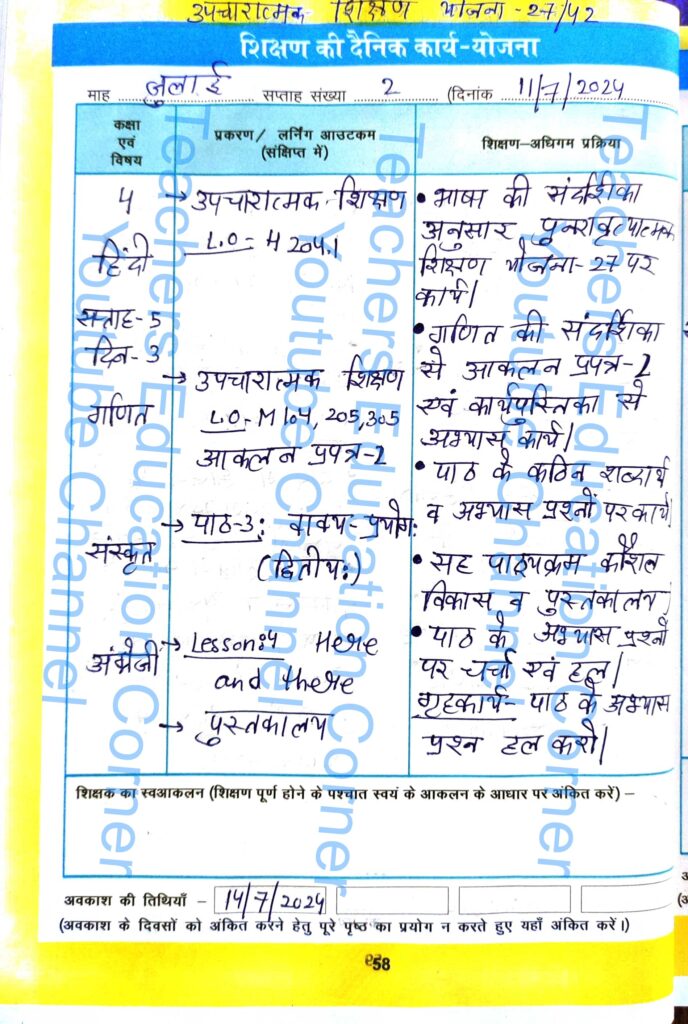 उपचारात्मक शिक्षण योजना - 27/42
शिक्षण की दैनिक कार्य-योजना
माह जुलाई सप्ताह संख्या 2 (दिनांक 11/7/2024
कक्षा
एवं
विषय
प्रकरण/ लर्निंग आउटकम
(संक्षिप्त में)
शिक्षण-अधिगम प्रक्रिया
4
हिंदी
सप्ताह-5
दिन-3
गणित
संस्कृत
अंग्रेजी
→ उपचारात्मक शिक्षण
L.O - H 204.1
→ उपचारात्मक शिक्षण
L.O- M 104, 205, 305
आकलन प्रपत्र-2
→ पाठ-3: वाक्य-प्रयोगः
(द्वितीयः)
→ Lesson:4 Here
and there
→ पुस्तकालय
• भाषा की संदर्शिका
अनुसार पुनरावृत्यात्मक
शिक्षण योजना-27 पर
कार्य।
• गणित की संदर्शिका
से आकलन प्रपत्र-2
एवं कार्यपुस्तिका से
अभ्यास कार्य।
• पाठ के कठिन शब्दार्थ
व अभ्यास प्रश्नों पर कार्य।
• सह पाठ्यक्रम कौशल
विकास व पुस्तकालय
• पाठ के अभ्यास प्रश्नों
पर चर्चा एवं हल।
गृहकार्य- पाठ के अभ्यास
प्रश्न हल करो।
शिक्षक का स्वआकलन (शिक्षण पूर्ण होने के पश्चात स्वयं के आकलन के आधार पर अंकित करें) –
अवकाश की तिथियाँ - 14/7/2024
(अवकाश के दिवसों को अंकित करने हेतु पूरे पृष्ठ का प्रयोग न करते हुए यहाँ अंकित करें।)
58
Teachers Education Corner
Youtube Channel
Teachers Education Corner
Youtube Channel
Teachers Education Corner
Youtube Channel